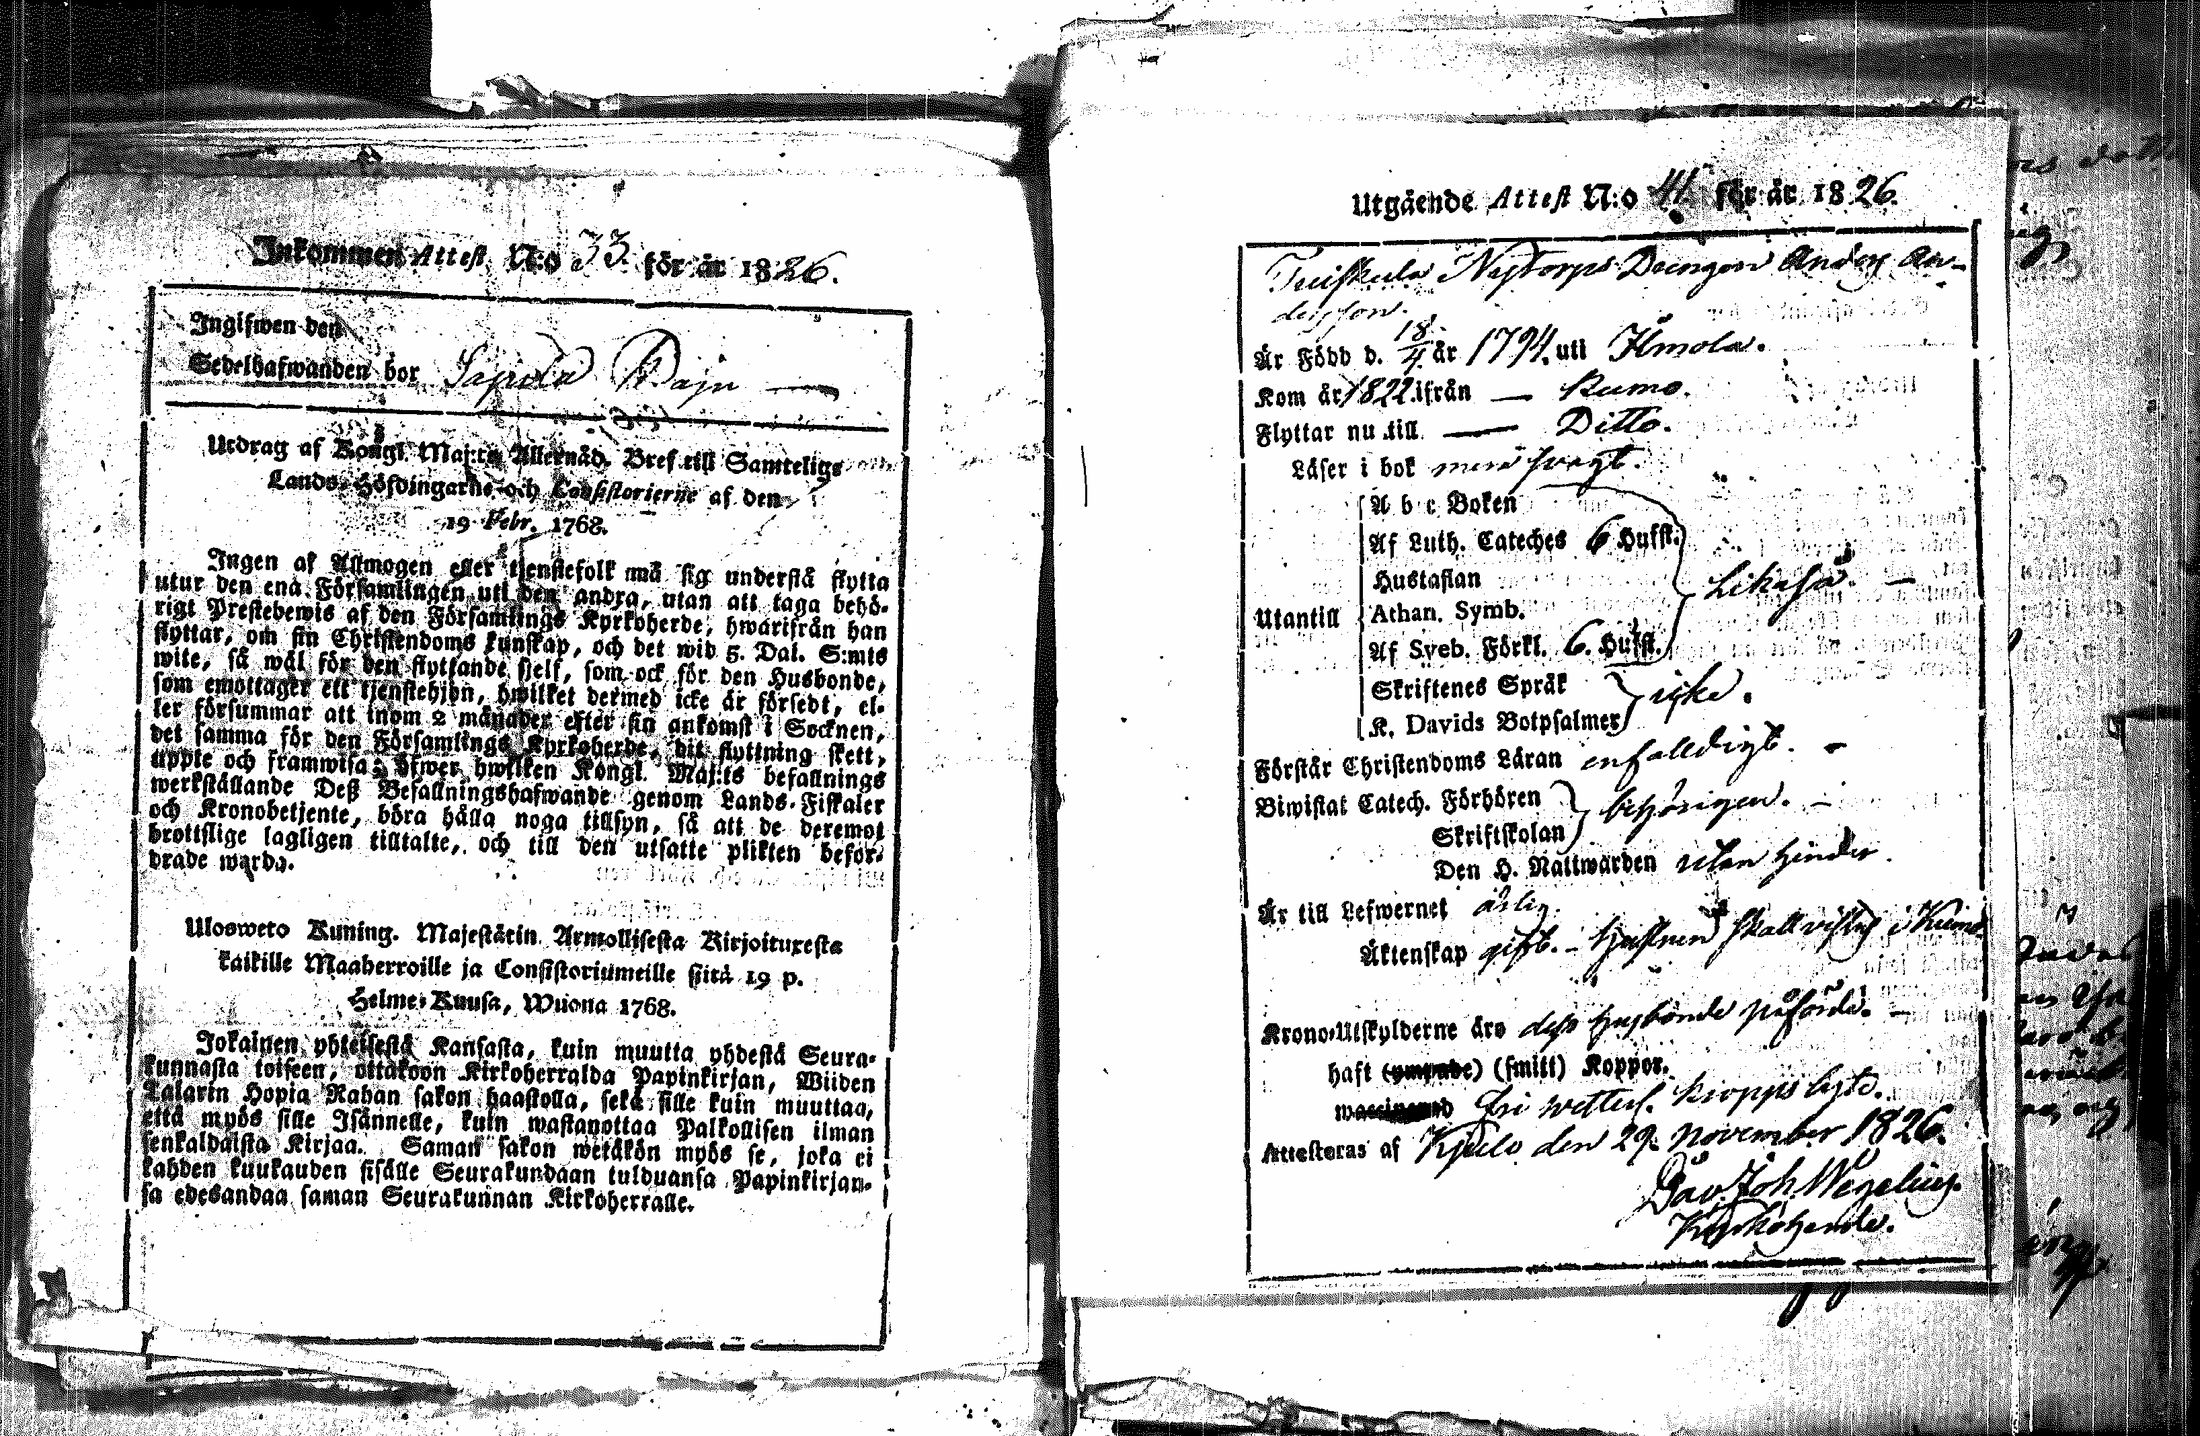 Inkommen Attest N:o 33 för år 1826.
Ingifwen den
Sedelhafwanden bor
Utdrag af Kongl. Maj:ts Allernåd. Bref till Samtelige
Lands-Höfdingarne och Consistorierne af den
19 Febr. 1768.
Ingen af Allmogen eller tjenstefolk må sig understå flytta
utur den ena Församlingen uti den andra, utan att taga behö-
rigt Prestebewis af den Församlings Kyrkoherde, hwarifrån han
flyttar, om sin Christendoms kunskap, och det wid 5. Dal. S:mts
wite, så wäl för den flyttande sjelf, som ock för den Husbonde,
som emottager ett tjenstehjon, hwilket dermed icke är försedt, el-
ler försummar att inom 2 månader efter sin ankomst i Socknen,
det samma för den Församlings Kyrkoherde, dit flyttning skett,
uppte och framwisa; öfwer hwilken Kongl. Maj:ts befallnings
werkställande Deß Befallningshafwande genom Lands-Fiskaler
och Kronobetjente, böra hålla noga tillsyn, så att de deremot
brottslige lagligen tilltalte, och till den utsatte plikten befor-
drade warda.
Ulosweto Kuning. Majestätin Armollisesta Kirjoituxesta
kaikille Maaherroille ja Consistoriumeille siitä 19 p.
Helme-Kuusa, Wuona 1768.
Jokainen yhteisestä Kansasta, kuin muutta yhdestä Seura-
kunnasta toiseen, ottakoon Kirkoherralda Papinkirjan, Wiiden
Talarin Hopia Rahan sakon haastolla, sekä sille kuin muuttaa,
että myös sille Isännelle, kuin wastanottaa Palkollisen ilman
senkaldaista Kirjaa. Saman sakon wetäkön myös se, joka ei
kahden kuukauden sisälle Seurakundaan tulduansa Papinkirjan-
sa edesandaa saman Seurakunnan Kirkoherralle.
Utgående Attest N:o 41. för år 1826.
Nystorps Drengen Anders An-
dersson.
Är Född d. 18/4 år 1794. uti Ilmola.
Kom år 1822 ifrån — Kumo.
Flyttar nu till — Ditto.
Läser i bok swagt.
A b c Boken
Af Luth. Cateches 6 Hufst.
Hustaflan
Likaså. —
Utantill Athan. Symb.
Af Sveb. Förkl. 6. Hufst.
Skriftenes Språk
icke.
K. Davids Botpsalmer
Förstår Christendoms Läran enfalldigt. —
Biwistat Catech. Förhören
behörigen. —
Skriftskolan
Den H. Nattwarden utan hinder.
Är till Lefwernet ärlig.
Äktenskap gift. — hustrun skall vistas i Kumo.
Krono-Utskylderne äro dess husbonde påförde. —
haft (ympade) (smitt) Koppor.
waccinerad fri kroppslyte.
Attesteras af Kjulo den 29. November 1826.
Dav. Joh. Wegelius.
Kyrkoherde.